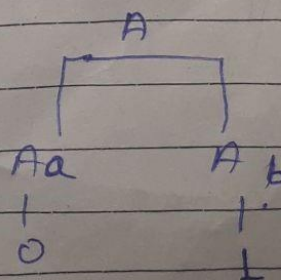 A
Aa A b
0 1